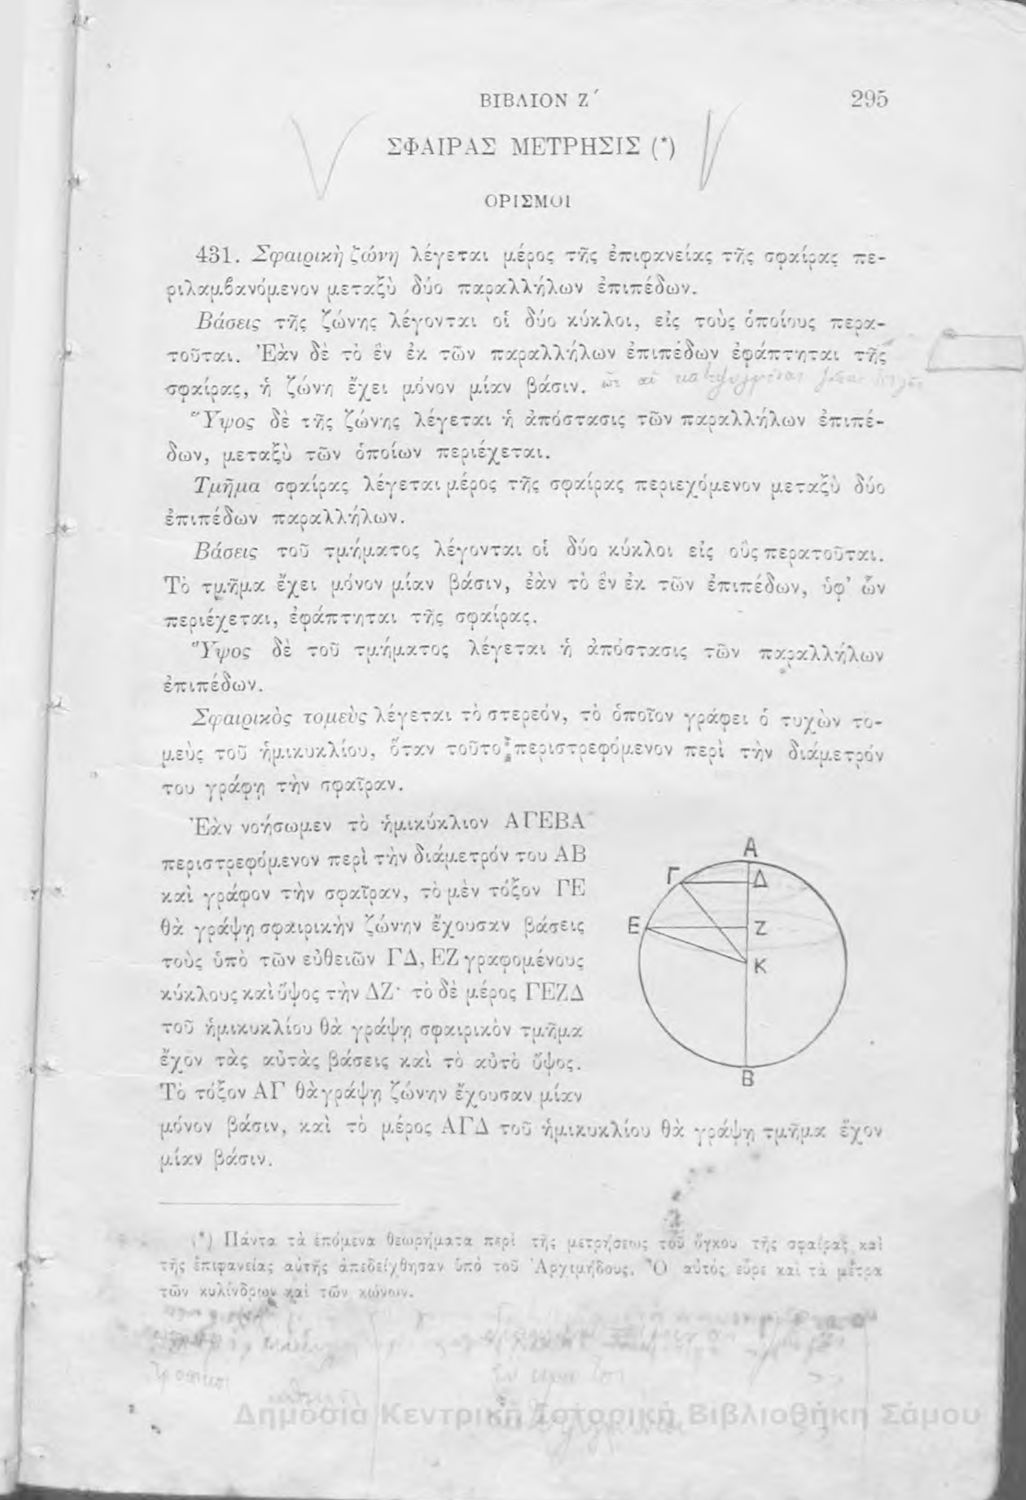 ΒΙΒΛΙΟΝ Ζ΄
295
ΣΦΑΙΡΑΣ ΜΕΤΡΗΣΙΣ (*)
ΟΡΙΣΜΟΙ
431. Σφαιρικὴ ζώνη λέγεται μέρος τῆς ἐπιφανείας τῆς σφαίρας πε-
ριλαμβανόμενον μεταξὺ δύο παραλλήλων ἐπιπέδων.
Βάσεις τῆς ζώνης λέγονται οἱ δύο κύκλοι, εἰς τοὺς ὁποίους περα-
τοῦται. Ἐὰν δὲ τὸ ἓν ἐκ τῶν παραλλήλων ἐπιπέδων ἐφάπτηται τῆς
σφαίρας, ἡ ζώνη ἔχει μόνον μίαν βάσιν.
Ὕψος δὲ τῆς ζώνης λέγεται ἡ ἀπόστασις τῶν παραλλήλων ἐπιπέ-
δων, μεταξὺ τῶν ὁποίων περιέχεται.
Τμῆμα σφαίρας λέγεται μέρος τῆς σφαίρας περιεχόμενον μεταξὺ δύο
ἐπιπέδων παραλλήλων.
Βάσεις τοῦ τμήματος λέγονται οἱ δύο κύκλοι εἰς οὓς περατοῦται.
Τὸ τμῆμα ἔχει μόνον μίαν βάσιν, ἐὰν τὸ ἓν ἐκ τῶν ἐπιπέδων, ὑφ' ὧν
περιέχεται, ἐφάπτηται τῆς σφαίρας.
Ὕψος δὲ τοῦ τμήματος λέγεται ἡ ἀπόστασις τῶν παραλλήλων
ἐπιπέδων.
Σφαιρικὸς τομεὺς λέγεται τὸ στερεόν, τὸ ὁποῖον γράφει ὁ τυχὼν το-
μεὺς τοῦ ἡμικυκλίου, ὅταν τοῦτο περιστρεφόμενον περὶ τὴν διάμετρόν
του γράφῃ τὴν σφαῖραν.
Ἐὰν νοήσωμεν τὸ ἡμικύκλιον ΑΓΕΒΑ
περιστρεφόμενον περὶ τὴν διάμετρόν του ΑΒ
καὶ γράφον τὴν σφαῖραν, τὸ μὲν τόξον ΓΕ
θὰ γράψῃ σφαιρικὴν ζώνην ἔχουσαν βάσεις
τοὺς ὑπὸ τῶν εὐθειῶν ΓΔ, ΕΖ γραφομένους
κύκλους καὶ ὕψος τὴν ΔΖ· τὸ δὲ μέρος ΓΕΖΔ
τοῦ ἡμικυκλίου θὰ γράψῃ σφαιρικὸν τμῆμα
ἔχον τὰς αὐτὰς βάσεις καὶ τὸ αὐτὸ ὕψος.
Τὸ τόξον ΑΓ θὰ γράψῃ ζώνην ἔχουσαν μίαν
μόνον βάσιν, καὶ τὸ μέρος ΑΓΔ τοῦ ἡμικυκλίου θὰ γράψῃ τμῆμα ἔχον
μίαν βάσιν.
Α
Γ
Δ
Ε
Ζ
Κ
Β
(*) Πάντα τὰ ἑπόμενα θεωρήματα περὶ τῆς μετρήσεως τοῦ ὄγκου τῆς σφαίρας καὶ
τῆς ἐπιφανείας αὐτῆς ἀπεδείχθησαν ὑπὸ τοῦ Ἀρχιμήδους. Ὁ αὐτὸς εὗρε καὶ τὰ μέτρα
τῶν κυλίνδρων καὶ τῶν κώνων.
Δημόσια Κεντρική Ιστορική Βιβλιοθήκη Σάμου